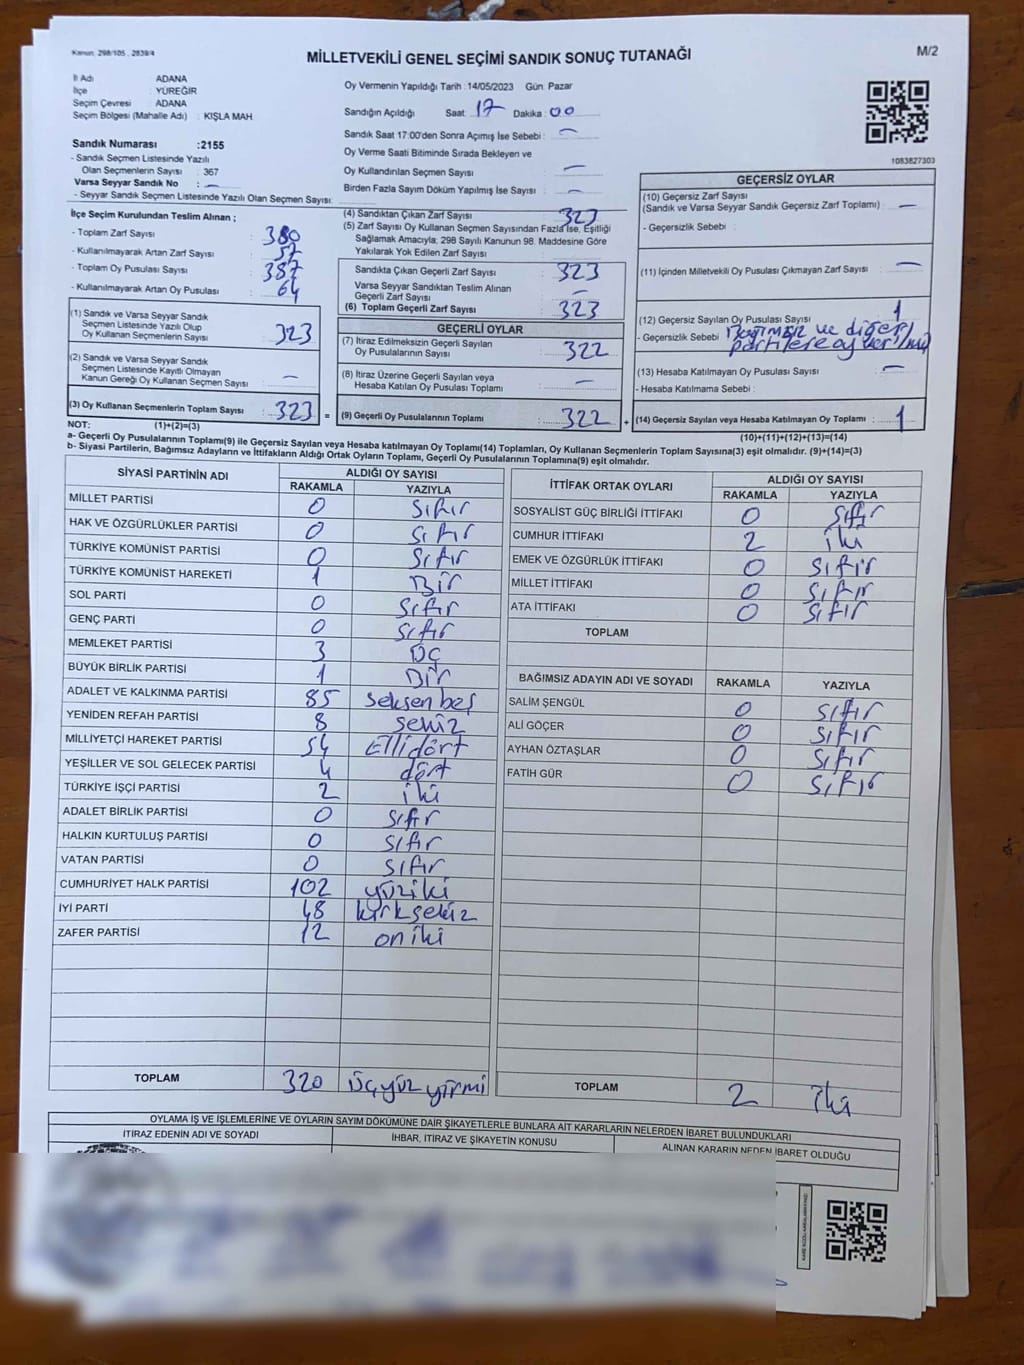 Kanun: 298/105 , 2839/4
MİLLETVEKİLİ GENEL SEÇİMİ SANDIK SONUÇ TUTANAĞI
M/2
İl Adı ADANA
İlçe YÜREĞİR
Seçim Çevresi ADANA
Seçim Bölgesi (Mahalle Adı) : KIŞLA MAH.
Sandık Numarası :2155
- Sandık Seçmen Listesinde Yazılı
Olan Seçmenlerin Sayısı : 367
Varsa Seyyar Sandık No : —
- Seyyar Sandık Seçmen Listesinde Yazılı Olan Seçmen Sayısı:
Oy Vermenin Yapıldığı Tarih :14/05/2023 Gün: Pazar
Sandığın Açıldığı Saat : 17 Dakika : 00
Sandık Saat 17:00'den Sonra Açımış İse Sebebi : —
Oy Verme Saati Bitiminde Sırada Bekleyen ve
Oy Kullandırılan Seçmen Sayısı : —
Birden Fazla Sayım Döküm Yapılmış İse Sayısı : —
1083827303
İlçe Seçim Kurulundan Teslim Alınan ;
- Toplam Zarf Sayısı : 380
- Kullanılmayarak Artan Zarf Sayısı : 57
- Toplam Oy Pusulası Sayısı : 387
- Kullanılmayarak Artan Oy Pusulası : 64
(1) Sandık ve Varsa Seyyar Sandık
Seçmen Listesinde Yazılı Olup
Oy Kullanan Seçmenlerin Sayısı : 323
(2) Sandık ve Varsa Seyyar Sandık
Seçmen Listesinde Kayıtlı Olmayan
Kanun Gereği Oy Kullanan Seçmen Sayısı : —
(3) Oy Kullanan Seçmenlerin Toplam Sayısı : 323 =
(4) Sandıktan Çıkan Zarf Sayısı : 323
(5) Zarf Sayısı Oy Kullanan Seçmen Sayısından Fazla İse, Eşitliği
Sağlamak Amacıyla, 298 Sayılı Kanunun 98. Maddesine Göre
Yakılarak Yok Edilen Zarf Sayısı :
Sandıkta Çıkan Geçerli Zarf Sayısı : 323
Varsa Seyyar Sandıktan Teslim Alınan
Geçerli Zarf Sayısı : —
(6) Toplam Geçerli Zarf Sayısı : 323
GEÇERLİ OYLAR
(7) İtiraz Edilmeksizin Geçerli Sayılan
Oy Pusulalarının Sayısı : 322
(8) İtiraz Üzerine Geçerli Sayılan veya
Hesaba Katılan Oy Pusulası Toplamı : —
(9) Geçerli Oy Pusulalarının Toplamı : 322 +
GEÇERSİZ OYLAR
(10) Geçersiz Zarf Sayısı
(Sandık ve Varsa Seyyar Sandık Geçersiz Zarf Toplamı) : —
- Geçersizlik Sebebi :
(11) İçinden Milletvekili Oy Pusulası Çıkmayan Zarf Sayısı : —
(12) Geçersiz Sayılan Oy Pusulası Sayısı : 1
- Geçersizlik Sebebi : Bağımsız ve diğer
partilere oy
(13) Hesaba Katılmayan Oy Pusulası Sayısı : —
- Hesaba Katılmama Sebebi :
(14) Geçersiz Sayılan veya Hesaba Katılmayan Oy Toplamı : 1
NOT: (1)+(2)=(3)
(10)+(11)+(12)+(13)=(14)
a- Geçerli Oy Pusulalarının Toplamı(9) ile Geçersiz Sayılan veya Hesaba katılmayan Oy Toplamı(14) Toplamları, Oy Kullanan Seçmenlerin Toplam Sayısına(3) eşit olmalıdır. (9)+(14)=(3)
b- Siyasi Partilerin, Bağımsız Adayların ve İttifakların Aldığı Ortak Oyların Toplamı, Geçerli Oy Pusulalarının Toplamına(9) eşit olmalıdır.
SİYASİ PARTİNİN ADI ALDIĞI OY SAYISI
RAKAMLA YAZIYLA
MİLLET PARTİSİ 0 Sıfır
HAK VE ÖZGÜRLÜKLER PARTİSİ 0 Sıfır
TÜRKİYE KOMÜNİST PARTİSİ 0 Sıfır
TÜRKİYE KOMÜNİST HAREKETİ 1 Bir
SOL PARTİ 0 Sıfır
GENÇ PARTİ 0 Sıfır
MEMLEKET PARTİSİ 3 Üç
BÜYÜK BİRLİK PARTİSİ 1 Bir
ADALET VE KALKINMA PARTİSİ 85 Seksen beş
YENİDEN REFAH PARTİSİ 8 sekiz
MİLLİYETÇİ HAREKET PARTİSİ 54 Ellidört
YEŞİLLER VE SOL GELECEK PARTİSİ 4 dört
TÜRKİYE İŞÇİ PARTİSİ 2 iki
ADALET BİRLİK PARTİSİ 0 Sıfır
HALKIN KURTULUŞ PARTİSİ 0 Sıfır
VATAN PARTİSİ 0 Sıfır
CUMHURİYET HALK PARTİSİ 102 yüziki
İYİ PARTİ 48 kırksekiz
ZAFER PARTİSİ 12 oniki
TOPLAM 320 Üçyüz yirmi
İTTİFAK ORTAK OYLARI ALDIĞI OY SAYISI
RAKAMLA YAZIYLA
SOSYALİST GÜÇ BİRLİĞİ İTTİFAKI 0 Sıfır
CUMHUR İTTİFAKI 2 iki
EMEK VE ÖZGÜRLÜK İTTİFAKI 0 Sıfır
MİLLET İTTİFAKI 0 Sıfır
ATA İTTİFAKI 0 Sıfır
TOPLAM
BAĞIMSIZ ADAYIN ADI VE SOYADI RAKAMLA YAZIYLA
SALİM ŞENGÜL 0 Sıfır
ALİ GÖÇER 0 Sıfır
AYHAN ÖZTAŞLAR 0 Sıfır
FATİH GÜR 0 Sıfır
TOPLAM 2 iki
OYLAMA İŞ VE İŞLEMLERİNE VE OYLARIN SAYIM DÖKÜMÜNE DAİR ŞİKAYETLERLE BUNLARA AİT KARARLARIN NELERDEN İBARET BULUNDUKLARI
İTİRAZ EDENİN ADI VE SOYADI İHBAR, İTİRAZ VE ŞİKAYETİN KONUSU ALINAN KARARIN NEDEN İBARET OLDUĞU